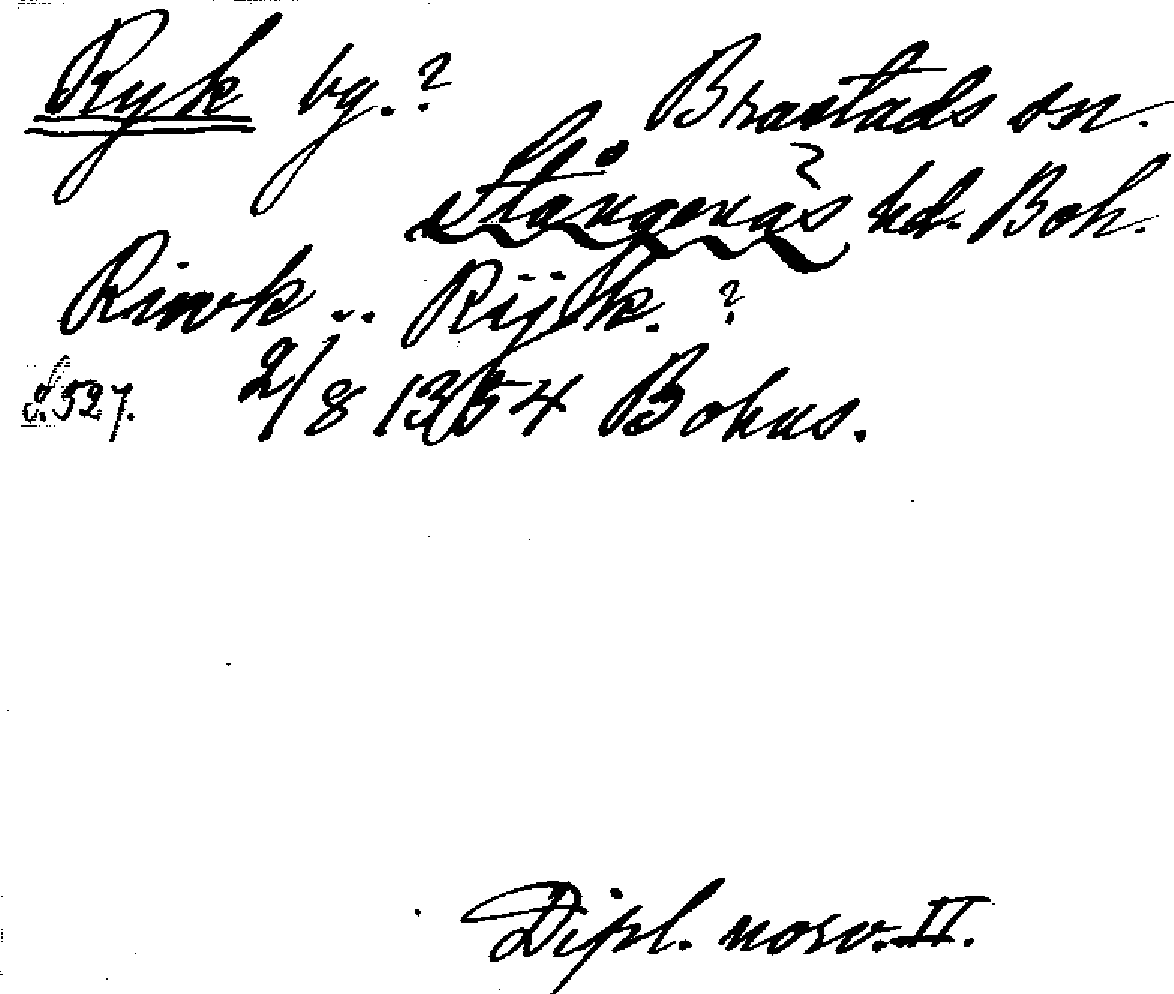 Ryk bg.? Brastads sn.
Stångenäs hd. Boh.
Rinvk .. Rijk. ?
s. 527. 2/8 1354 Bohus.
Dipl. norv. II.